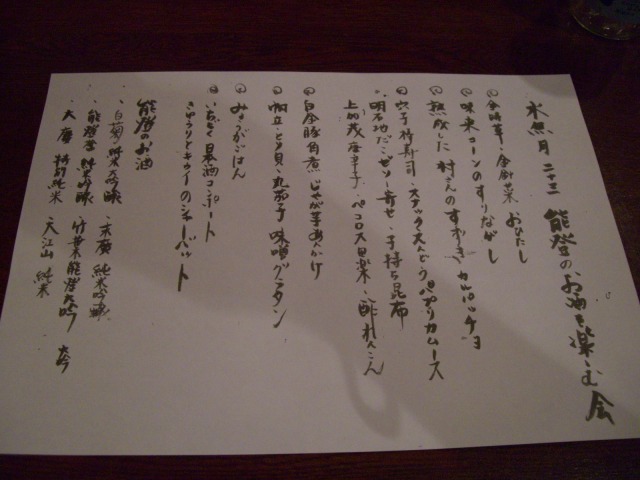 水無月 二十三 能登のお酒を楽しむ会
金時草・金針菜 おひたし
味来コーンのすりながし
熟成した 村さんのすずき カルパッチョ
穴子棒寿司・スナックえんどうパプリカムース
明石地だこゼリー寄せ・子持ち昆布
上加茂唐辛子・ペコロス田楽・酢れんこん
白金豚角煮 じゃが芋あんかけ
帆立・とり貝・丸茄子 味噌グラタン
みょうがごはん
いちじく 日本酒コンポート
きゅうりとキウイのシャーベット
能登のお酒
・白菊 純米大吟醸 ・末廣 純米吟醸
・能登誉 純米吟醸 ・竹葉 能登大吟 大吟
・大慶 特別純米 ・大江山 純米